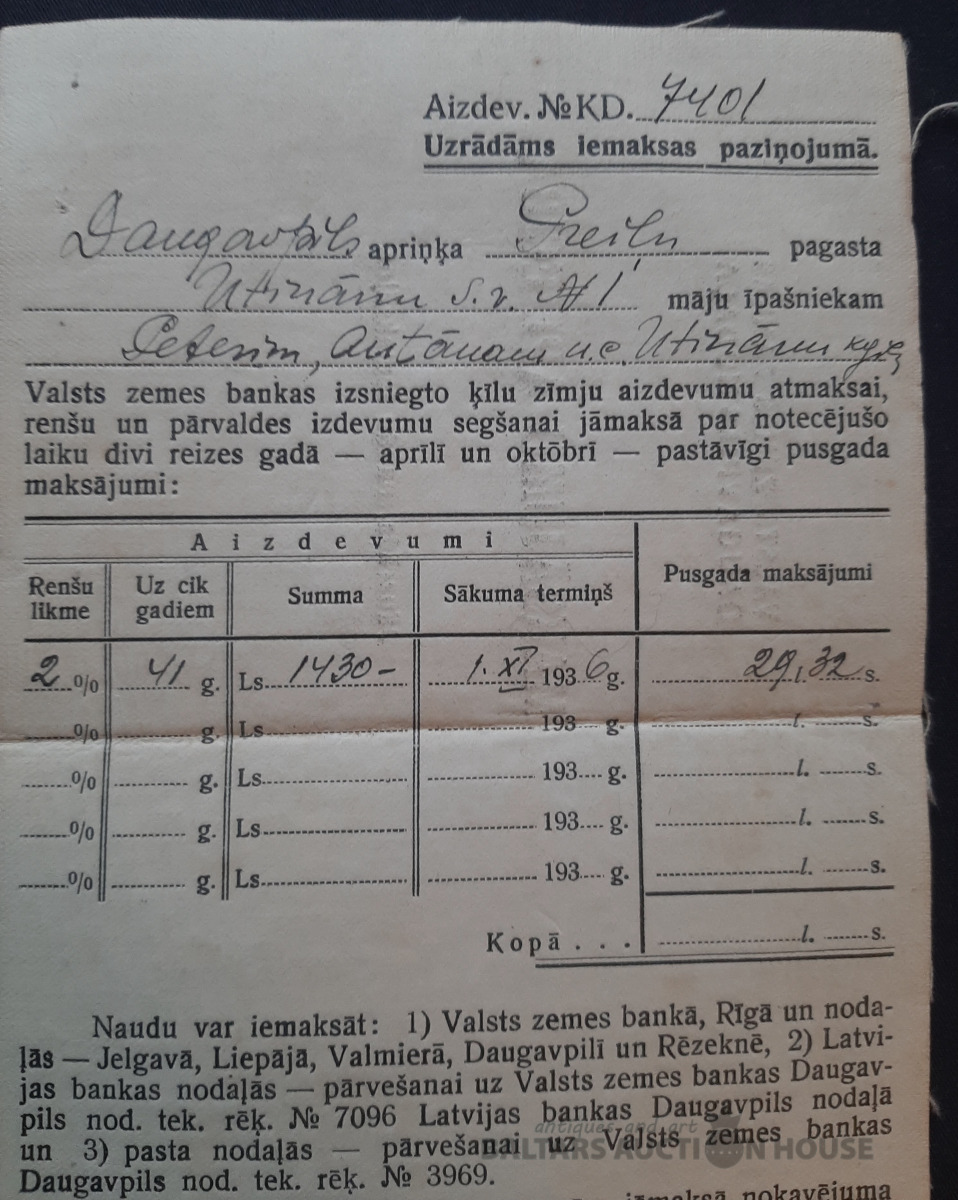 Aizdev. № KD. 7401
Uzrādāms iemaksas paziņojumā.
Daugavpils apriņķa Preiļu pagasta
Utinānu s. v. № 1 māju īpašniekam
Peterim, Antānam u.c. Utinānu
Valsts zemes bankas izsniegto ķīlu zīmju aizdevumu atmaksai,
renšu un pārvaldes izdevumu segšanai jāmaksā par notecējušo
laiku divi reizes gadā — aprīlī un oktōbrī — pastāvīgi pusgada
maksājumi:
Aizdevumi
Renšu likme Uz cik gadiem Summa Sākuma termiņš Pusgada maksājumi
2 % 41 g. Ls 1430- 1. XI 1936 g. 29,32 s.
% g. Ls 193 g. l. s.
% g. Ls 193 g. l. s.
% g. Ls 193 g. l. s.
% g. Ls 193 g. l. s.
Kopā . . . l. s.
Naudu var iemaksāt: 1) Valsts zemes bankā, Rīgā un noda-
ļās — Jelgavā, Liepājā, Valmierā, Daugavpilī un Rēzeknē, 2) Latvi-
jas bankas nodaļās — pārvešanai uz Valsts zemes bankas Daugav-
pils nod. tek. rēķ. № 7096 Latvijas bankas Daugavpils nodaļā
un 3) pasta nodaļās — pārvešanai uz Valsts zemes bankas
Daugavpils nod. tek. rēķ. № 3969.
jāmaksā nokavējuma
antiques and art
BALTARS AUCTION HOUSE